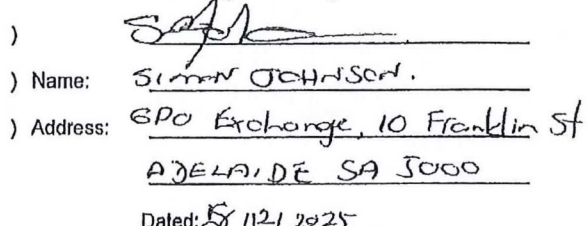 )
) Name: SIMON JOHNSON.
) Address: GPO Exchange, 10 Franklin St
ADELAIDE SA 5000
Dated: / 12 / 2025